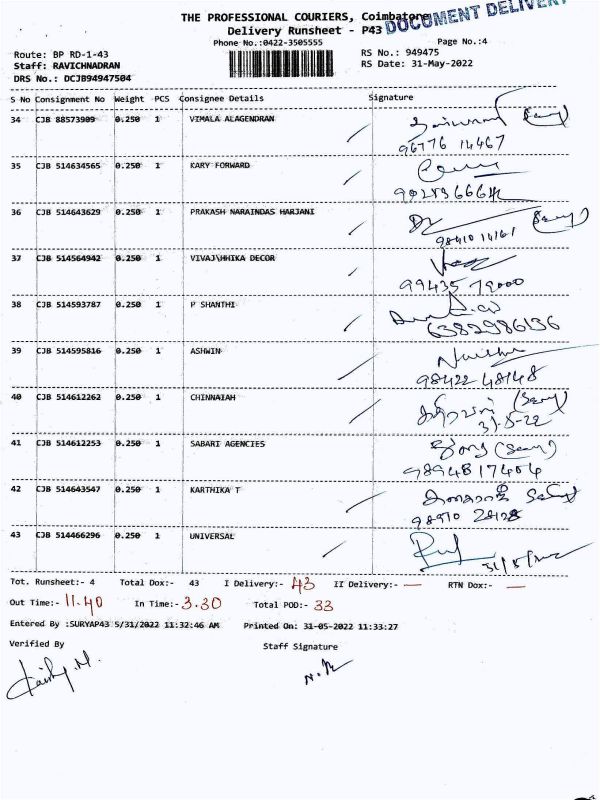 THE PROFESSIONAL COURIERS, Coimbatore
DOCUMENT DELIVERY
Delivery Runsheet - P43
Phone No.:0422-3505555
Page No.:4
Route: BP RD-1-43
RS No.: 949475
Staff: RAVICHNADRAN
RS Date: 31-May-2022
DRS No.: DCJB94947504
S No Consignment No Weight PCS Consignee Details Signature
34 CJB 88573909 0.250 1 VIMALA ALAGENDRAN
96776 14467
35 CJB 514634565 0.250 1 KARY FORWARD
36 CJB 514643629 0.250 1 PRAKASH NARAINDAS HARJANI
98410 14161
37 CJB 514564942 0.250 1 VIVAJ\HHIKA DECOR
99435 79000
38 CJB 514593787 0.250 1 P SHANTHI
6382986136
39 CJB 514595816 0.250 1 ASHWIN
98422 48148
40 CJB 514612262 0.250 1 CHINNAIAH
31-5-22
41 CJB 514612253 0.250 1 SABARI AGENCIES
9894817404
42 CJB 514643547 0.250 1 KARTHIKA T
43 CJB 514466296 0.250 1 UNIVERSAL
Tot. Runsheet:- 4 Total Dox:- 43 I Delivery:- 43 II Delivery:- — RTN Dox:- —
Out Time:- 11.40 In Time:- 3.30 Total POD:- 33
Entered By :SURYAP43 5/31/2022 11:32:46 AM Printed On: 31-05-2022 11:33:27
Verified By Staff Signature